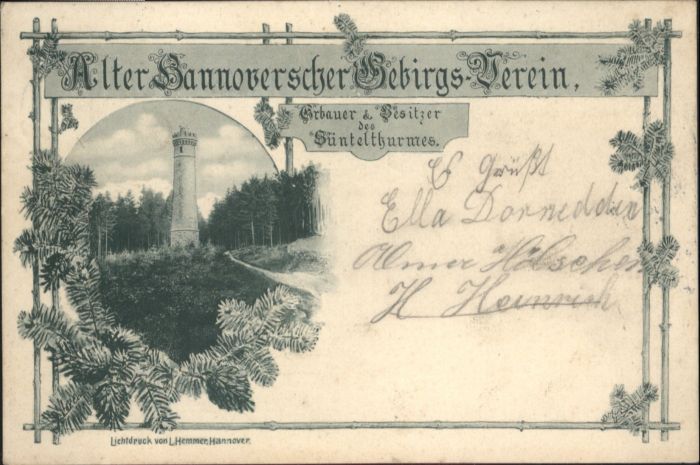 Alter Hannoverscher Gebirgs-Verein,
Erbauer & Besitzer
des
Süntelthurmes.
Es Grüßt
Ella Dornedden
Alma Hölscher
H Heinrich
Lichtdruck von L. Hemmer, Hannover.